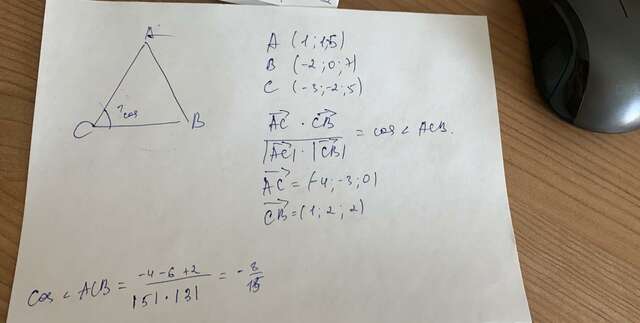 A
?cos
C B
A (1; 1;5)
B (-2; 0; 7)
C (-3; -2; 5)
$\frac{\overrightarrow{AC} \cdot \overrightarrow{CB}}{|\overrightarrow{AC}| \cdot |\overrightarrow{CB}|}$ = cos < ACB.
$\overrightarrow{AC}$ = (-4; -3; 0)
$\overrightarrow{CB}$ = (1; 2; 2)
Cos < ACB = $\frac{-4-6+2}{|5| \cdot |3|}$ = $-\frac{8}{15}$